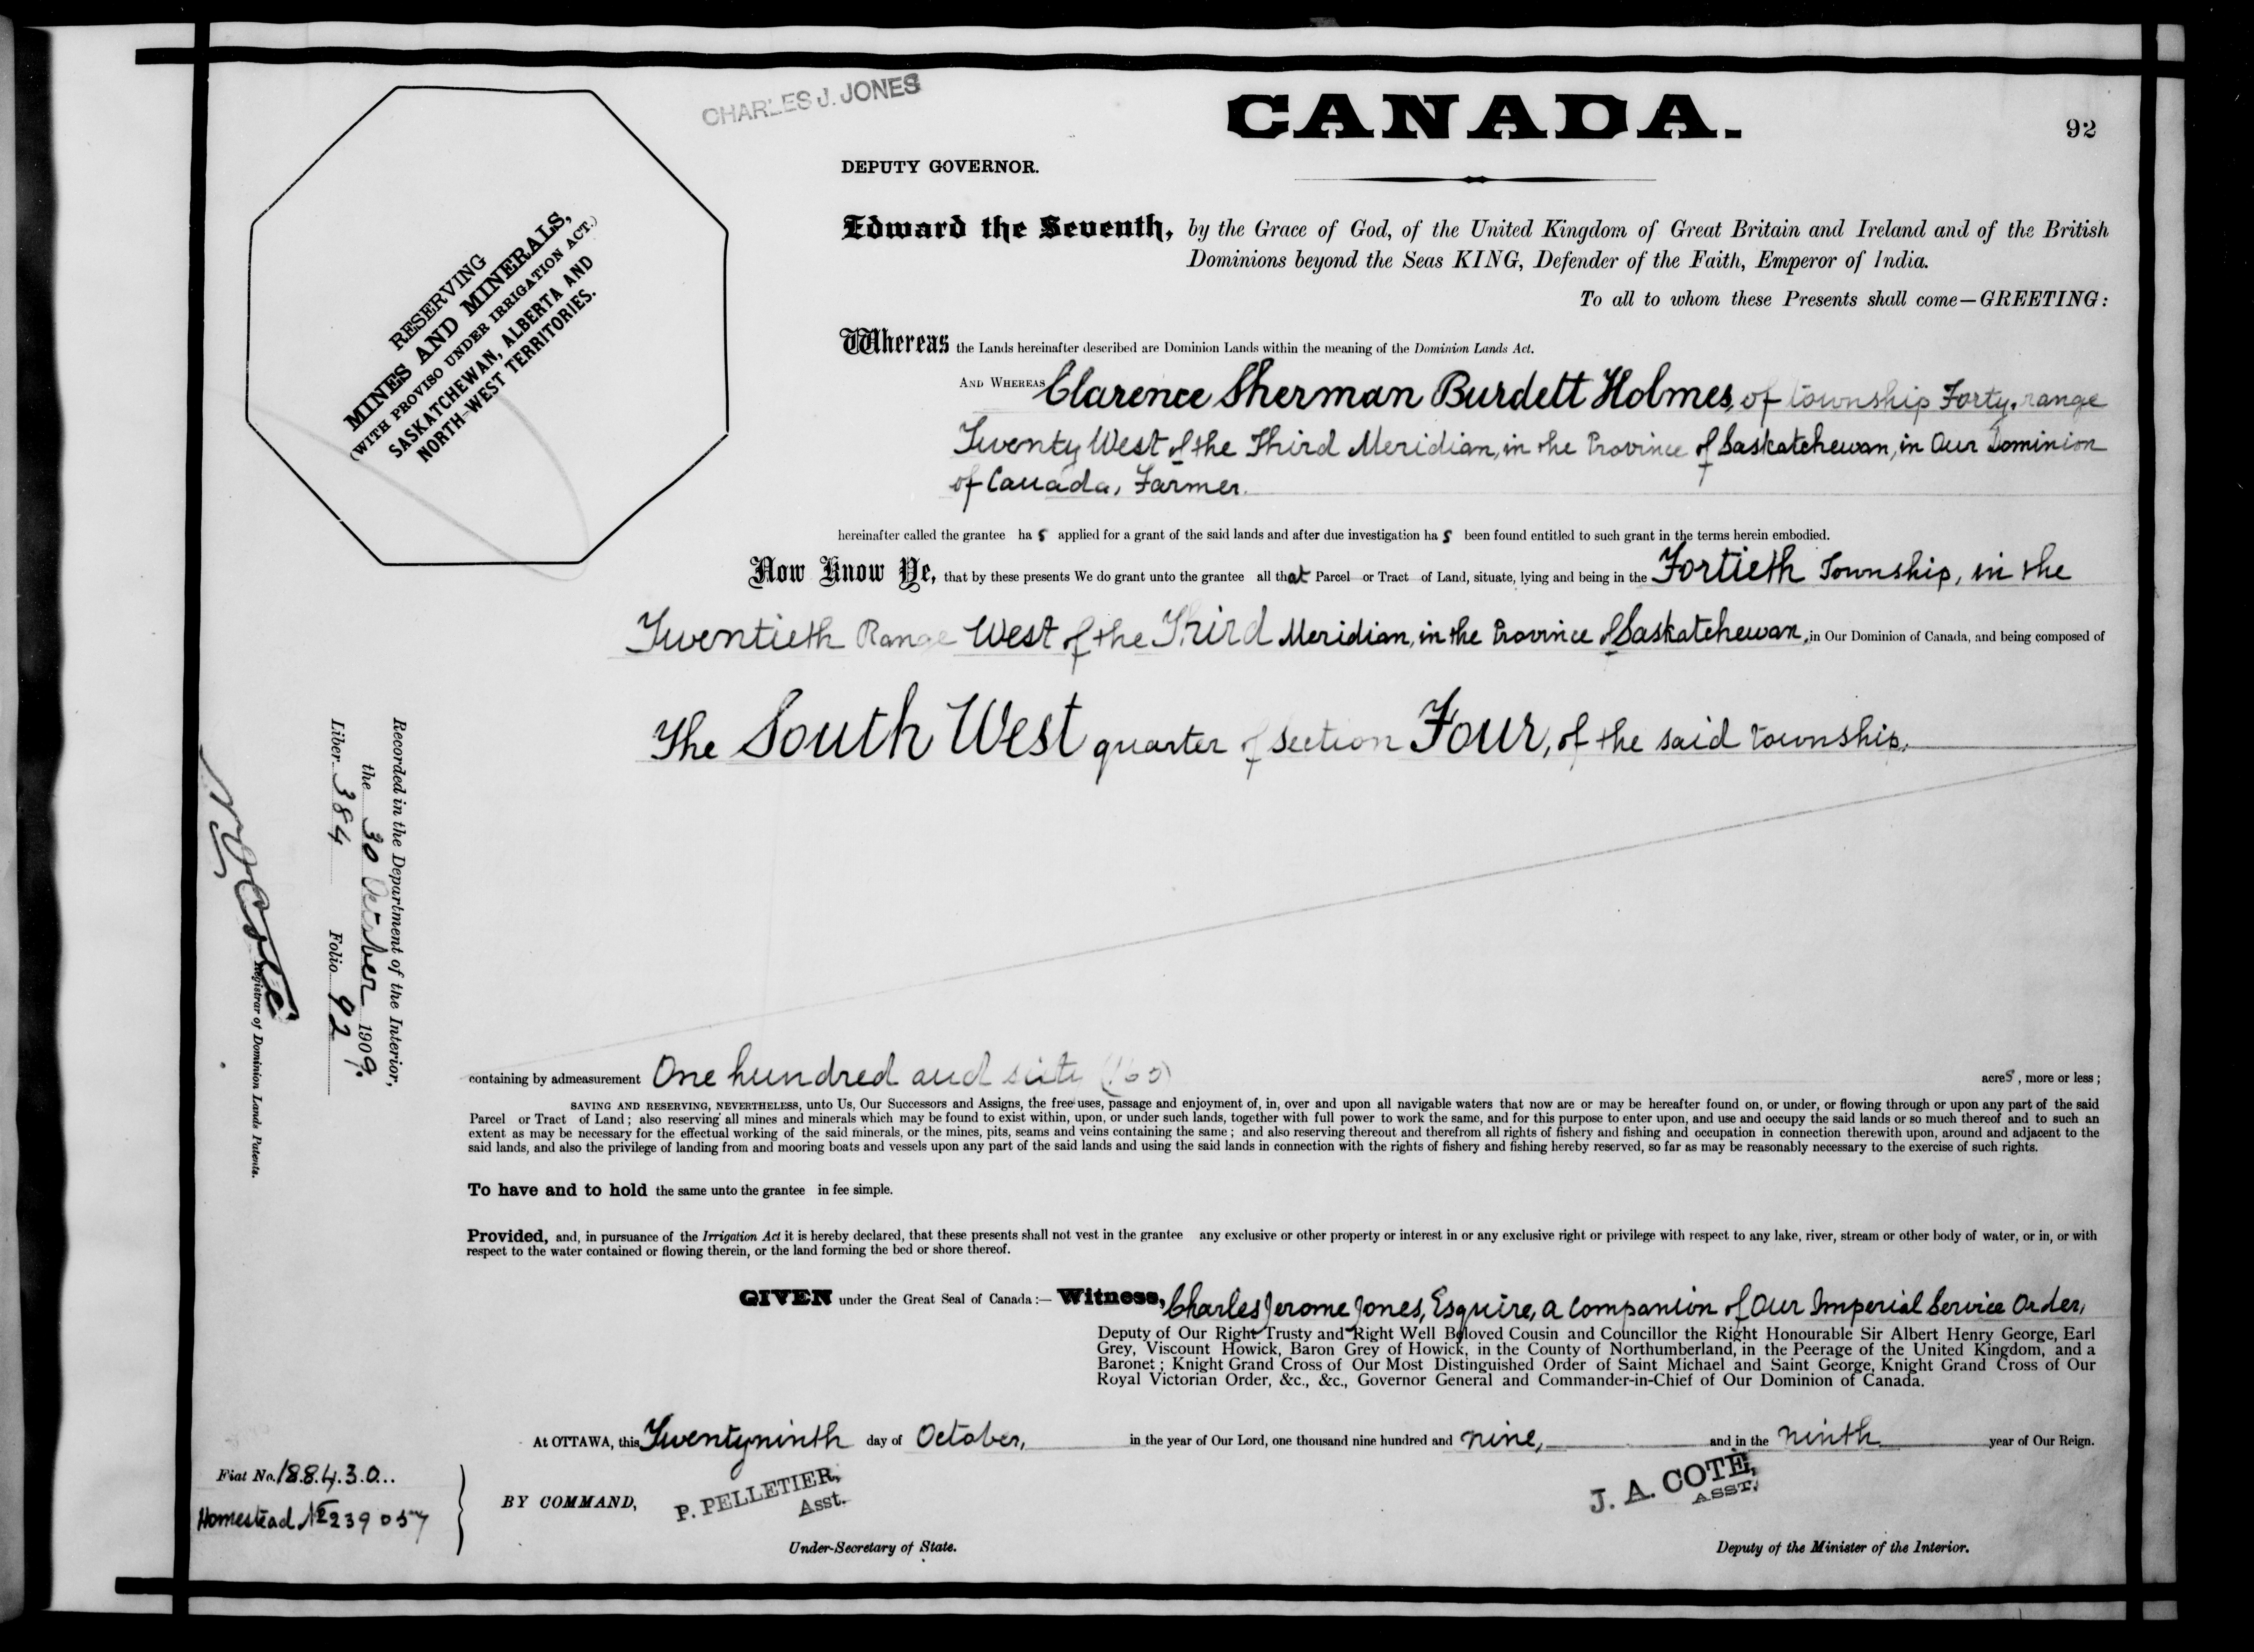 CHARLES J. JONES
CANADA.
92
DEPUTY GOVERNOR.
RESERVING
MINES AND MINERALS,
(WITH PROVISO UNDER IRRIGATION ACT.)
SASKATCHEWAN, ALBERTA AND
NORTH-WEST TERRITORIES.
Edward the Seventh, by the Grace of God, of the United Kingdom of Great Britain and Ireland and of the British
Dominions beyond the Seas KING, Defender of the Faith, Emperor of India.
To all to whom these Presents shall come—GREETING:
Whereas the Lands hereinafter described are Dominion Lands within the meaning of the Dominion Lands Act.
AND WHEREAS Clarence Sherman Burdett Holmes, of township Forty, range
Twenty West of the Third Meridian, in the Province of Saskatchewan, in Our Dominion
of Canada, Farmer.
hereinafter called the grantee has applied for a grant of the said lands and after due investigation has been found entitled to such grant in the terms herein embodied.
Now Know Ye, that by these presents We do grant unto the grantee all that Parcel or Tract of Land, situate, lying and being in the Fortieth Township, in the
Twentieth Range West of the Third Meridian, in the Province of Saskatchewan, in Our Dominion of Canada, and being composed of
The South West quarter of Section Four, of the said township.
Recorded in the Department of the Interior,
the 30 October 1909.
Liber 384 Folio 92
N. O. Coté
Registrar of Dominion Lands Patents.
containing by admeasurement One hundred and sixty (160) acres, more or less;
SAVING AND RESERVING, NEVERTHELESS, unto Us, Our Successors and Assigns, the free uses, passage and enjoyment of, in, over and upon all navigable waters that now are or may be hereafter found on, or under, or flowing through or upon any part of the said
Parcel or Tract of Land; also reserving all mines and minerals which may be found to exist within, upon, or under such lands, together with full power to work the same, and for this purpose to enter upon, and use and occupy the said lands or so much thereof and to such an
extent as may be necessary for the effectual working of the said minerals, or the mines, pits, seams and veins containing the same; and also reserving thereout and therefrom all rights of fishery and fishing and occupation in connection therewith upon, around and adjacent to the
said lands, and also the privilege of landing from and mooring boats and vessels upon any part of the said lands and using the said lands in connection with the rights of fishery and fishing hereby reserved, so far as may be reasonably necessary to the exercise of such rights.
To have and to hold the same unto the grantee in fee simple.
Provided, and, in pursuance of the Irrigation Act it is hereby declared, that these presents shall not vest in the grantee any exclusive or other property or interest in or any exclusive right or privilege with respect to any lake, river, stream or other body of water, or in, or with
respect to the water contained or flowing therein, or the land forming the bed or shore thereof.
GIVEN under the Great Seal of Canada:— Witness, Charles Jerome Jones, Esquire, a Companion of Our Imperial Service Order,
Deputy of Our Right Trusty and Right Well Beloved Cousin and Councillor the Right Honourable Sir Albert Henry George, Earl
Grey, Viscount Howick, Baron Grey of Howick, in the County of Northumberland, in the Peerage of the United Kingdom, and a
Baronet; Knight Grand Cross of Our Most Distinguished Order of Saint Michael and Saint George, Knight Grand Cross of Our
Royal Victorian Order, &c., &c., Governor General and Commander-in-Chief of Our Dominion of Canada.
At OTTAWA, this Twentyninth day of October, in the year of Our Lord, one thousand nine hundred and nine, and in the ninth year of Our Reign.
Fiat No. 188430...
Homestead No 239057
BY COMMAND,
P. PELLETIER,
Asst.
Under-Secretary of State.
J. A. COTÉ,
ASST.
Deputy of the Minister of the Interior.